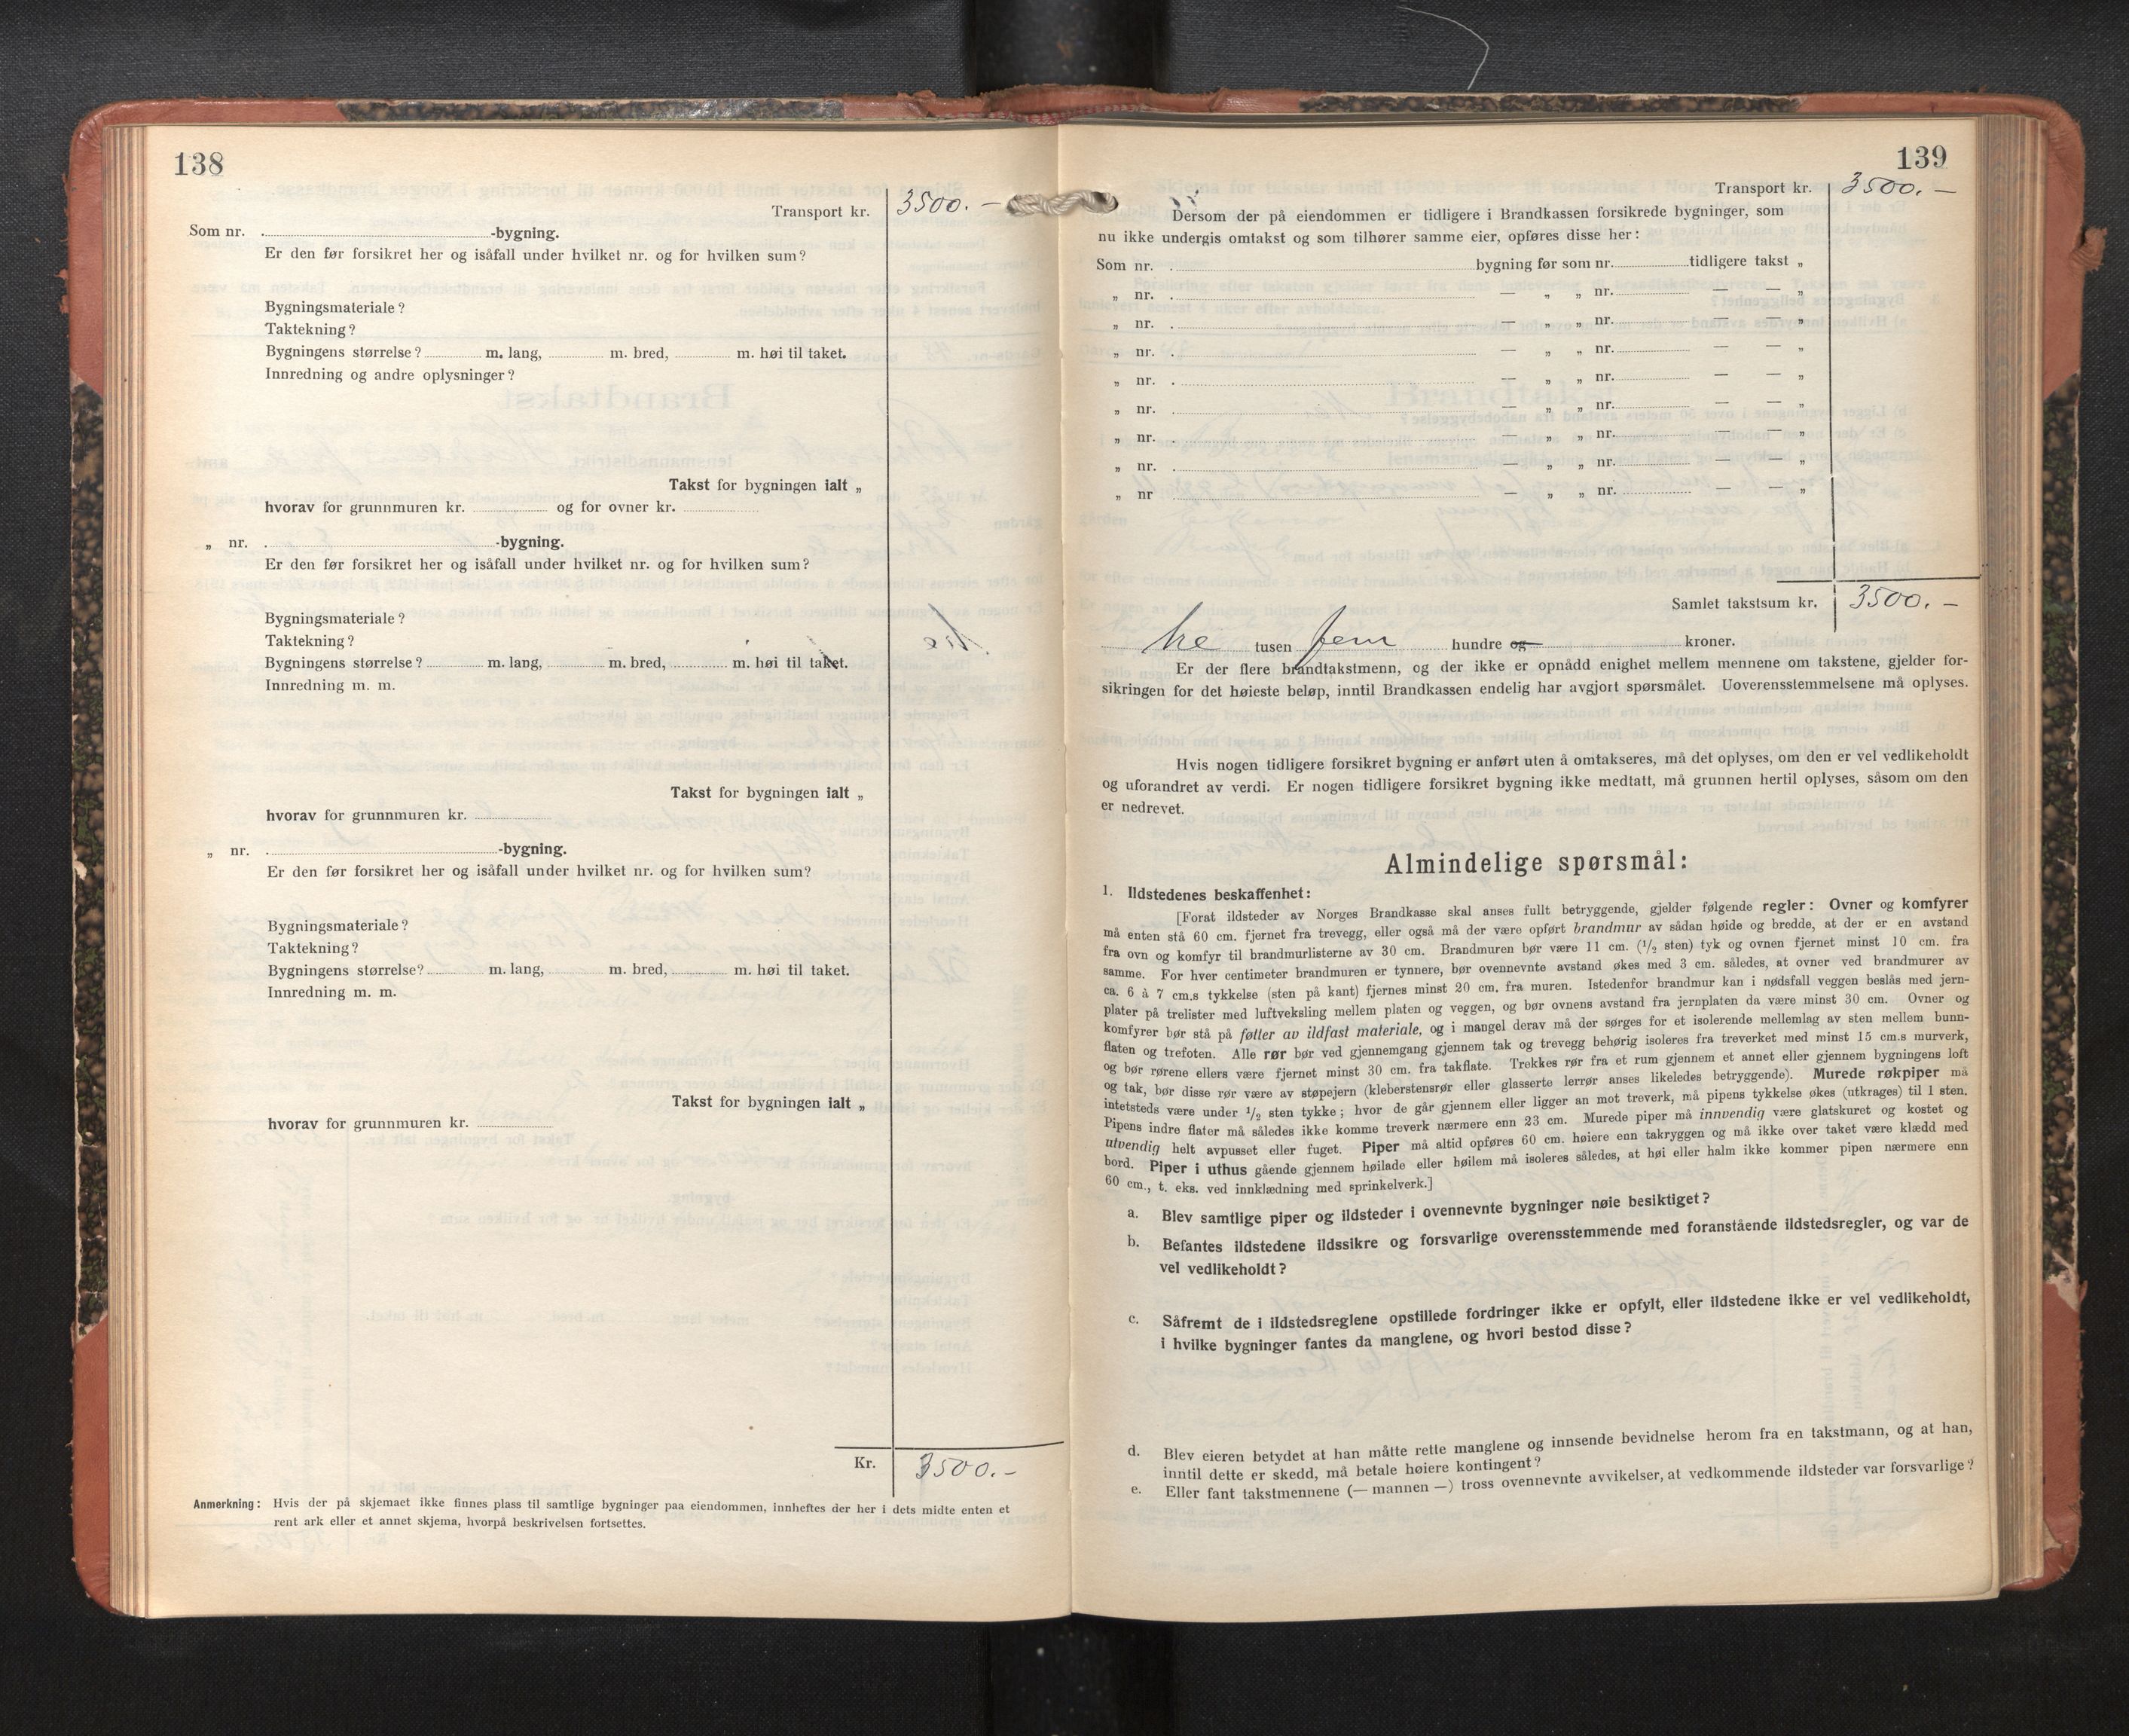 138
Transport kr. 3500.-
Som nr. -bygning.
Er den før forsikret her og isåfall under hvilket nr. og for hvilken sum?
Bygningsmateriale?
Taktekning?
Bygningens størrelse? m. lang, m. bred, m. høi til taket.
Innredning og andre oplysninger?
Takst for bygningen ialt „
hvorav for grunnmuren kr. og for ovner kr.
„ nr. -bygning.
Er den før forsikret her og isåfall under hvilket nr. og for hvilken sum?
Bygningsmateriale?
Taktekning?
Bygningens størrelse? m. lang, m. bred, m. høi til taket.
Innredning m. m.
Takst for bygningen ialt „
hvorav for grunnmuren kr.
„ nr. -bygning.
Er den før forsikret her og isåfall under hvilket nr. og for hvilken sum?
Bygningsmateriale?
Taktekning?
Bygningens størrelse? m. lang, m. bred, m. høi til taket.
Innredning m. m.
Takst for bygningen ialt „
hvorav for grunnmuren kr.
Kr. 3500.-
Anmerkning: Hvis der på skjemaet ikke finnes plass til samtlige bygninger paa eiendommen, innheftes der her i dets midte enten et
rent ark eller et annet skjema, hvorpå beskrivelsen fortsettes.
139
Transport kr. 3500.-
Dersom der på eiendommen er tidligere i Brandkassen forsikrede bygninger, som
nu ikke undergis omtakst og som tilhører samme eier, opføres disse her:
Som nr. bygning før som nr. tidligere takst „
„ nr. — „ „ nr. — — „
„ nr. — „ „ nr. — — „
„ nr. — „ „ nr. — — „
„ nr. — „ „ nr. — — „
„ nr. — „ „ nr. — — „
„ nr. — „ „ nr. — — „
„ nr. — „ „ nr. — — „
„ nr — „ „ nr. — — „
Samlet takstsum kr. 3500.-
tre tusen fem hundre og kroner.
Er der flere brandtakstmenn, og der ikke er opnådd enighet mellem mennene om takstene, gjelder for-
sikringen for det høieste beløp, inntil Brandkassen endelig har avgjort spørsmålet. Uoverensstemmelsene må oplyses.
Hvis nogen tidligere forsikret bygning er anført uten å omtakseres, må det oplyses, om den er vel vedlikeholdt
og uforandret av verdi. Er nogen tidligere forsikret bygning ikke medtatt, må grunnen hertil oplyses, såsom om den
er nedrevet.
Almindelige spørsmål:
1. Ildstedenes beskaffenhet:
[Forat ildsteder av Norges Brandkasse skal anses fullt betryggende, gjelder følgende regler: Ovner og komfyrer
må enten stå 60 cm. fjernet fra trevegg, eller også må der være opført brandmur av sådan høide og bredde, at der er en avstand
fra ovn og komfyr til brandmurlisterne av 30 cm. Brandmuren bør være 11 cm. (1/2 sten) tyk og ovnen fjernet minst 10 cm. fra
samme. For hver centimeter brandmuren er tynnere, bør ovennevnte avstand økes med 3 cm. således, at ovner ved brandmurer av
ca. 6 à 7 cm.s tykkelse (sten på kant) fjernes minst 20 cm. fra muren. Istedenfor brandmur kan i nødsfall veggen beslås med jern-
plater på trelister med luftveksling mellem platen og veggen, og bør ovnens avstand fra jernplaten da være minst 30 cm. Ovner og
komfyrer bør stå på føtter av ildfast materiale, og i mangel derav må der sørges for et isolerende mellemlag av sten mellem bunn-
flaten og trefoten. Alle rør bør ved gjennemgang gjennem tak og trevegg behørig isoleres fra treverket med minst 15 cm.s murverk,
og bør rørene ellers være fjernet minst 30 cm. fra takflate. Trekkes rør fra et rum gjennem et annet eller gjennem bygningens loft
og tak, bør disse rør være av støpejern (kleberstensrør eller glasserte lerrør anses likeledes betryggende). Murede røkpiper må
intetsteds være under 1/2 sten tykke; hvor de går gjennem eller ligger an mot treverk, må pipens tykkelse økes (utkrages) til 1 sten.
Pipens indre flater må således ikke komme treverk nærmere enn 23 cm. Murede piper må innvendig være glatskuret og kostet og
utvendig helt avpusset eller fuget. Piper må altid opføres 60 cm. høiere enn takryggen og må ikke over taket være klædd med
bord. Piper i uthus gående gjennem høilade eller høilem må isoleres således, at høi eller halm ikke kommer pipen nærmere enn
60 cm., t. eks. ved innklædning med sprinkelverk.]
a. Blev samtlige piper og ildsteder i ovennevnte bygninger nøie besiktiget?
b. Befantes ildstedene ildssikre og forsvarlige overensstemmende med foranstående ildstedsregler, og var de
vel vedlikeholdt?
c. Såfremt de i ildstedsreglene opstillede fordringer ikke er opfylt, eller ildstedene ikke er vel vedlikeholdt,
i hvilke bygninger fantes da manglene, og hvori bestod disse?
d. Blev eieren betydet at han måtte rette manglene og innsende bevidnelse herom fra en takstmann, og at han,
inntil dette er skedd, må betale høiere kontingent?
e. Eller fant takstmennene (— mannen —) tross ovennevnte avvikelser, at vedkommende ildsteder var forsvarlige?